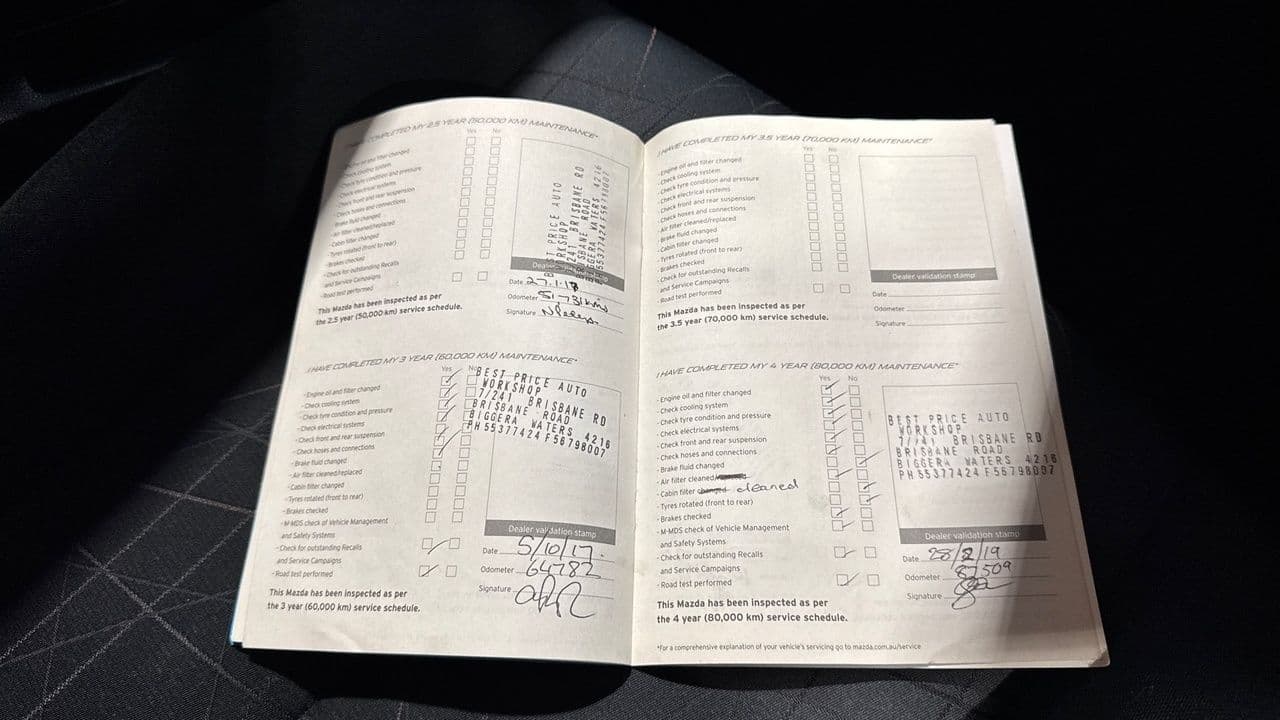 I HAVE COMPLETED MY 2.5 YEAR (50,000 KM) MAINTENANCE*
Yes No
- Engine oil and filter changed
- Check cooling system
- Check tyre condition and pressure
- Check electrical systems
- Check front and rear suspension
- Check hoses and connections
- Brake fluid changed
- Air filter cleaned/replaced
- Cabin filter changed
- Tyres rotated (front to rear)
- Brakes checked
- Check for outstanding Recalls
and Service Campaigns
- Road test performed
This Mazda has been inspected as per
the 2.5 year (50,000 km) service schedule.
BEST PRICE AUTO
WORKSHOP
7/241 BRISBANE RD
BRISBANE ROAD
BIGGERA WATERS 4216
PH 55377424 F 56798007
Dealer validation stamp
Date 27.1.17
Odometer 51-731 kms
Signature
I HAVE COMPLETED MY 3 YEAR (60,000 KM) MAINTENANCE*
Yes No
- Engine oil and filter changed
- Check cooling system
- Check tyre condition and pressure
- Check electrical systems
- Check front and rear suspension
- Check hoses and connections
- Brake fluid changed
- Air filter cleaned/replaced
- Cabin filter changed
- Tyres rotated (front to rear)
- Brakes checked
- M-MDS check of Vehicle Management
and Safety Systems
- Check for outstanding Recalls
and Service Campaigns
- Road test performed
This Mazda has been inspected as per
the 3 year (60,000 km) service schedule.
BEST PRICE AUTO
WORKSHOP
7/241 BRISBANE RD
BRISBANE ROAD
BIGGERA WATERS 4216
PH 55377424 F 56798007
Dealer validation stamp
Date 5/10/17.
Odometer 64782
Signature
I HAVE COMPLETED MY 3.5 YEAR (70,000 KM) MAINTENANCE*
Yes No
- Engine oil and filter changed
- Check cooling system
- Check tyre condition and pressure
- Check electrical systems
- Check front and rear suspension
- Check hoses and connections
- Air filter cleaned/replaced
- Brake fluid changed
- Cabin filter changed
- Tyres rotated (front to rear)
- Brakes checked
- Check for outstanding Recalls
and Service Campaigns
- Road test performed
This Mazda has been inspected as per
the 3.5 year (70,000 km) service schedule.
Dealer validation stamp
Date
Odometer
Signature
I HAVE COMPLETED MY 4 YEAR (80,000 KM) MAINTENANCE*
Yes No
- Engine oil and filter changed
- Check cooling system
- Check tyre condition and pressure
- Check electrical systems
- Check front and rear suspension
- Check hoses and connections
- Brake fluid changed
- Air filter cleaned/
- Cabin filter changed cleaned
- Tyres rotated (front to rear)
- Brakes checked
- M-MDS check of Vehicle Management
and Safety Systems
- Check for outstanding Recalls
and Service Campaigns
- Road test performed
This Mazda has been inspected as per
the 4 year (80,000 km) service schedule.
BEST PRICE AUTO
WORKSHOP
7/241 BRISBANE RD
BRISBANE ROAD
BIGGERA WATERS 4216
PH 55377424 F 56798007
Dealer validation stamp
Date 28/2/19
Odometer 87509
Signature
*For a comprehensive explanation of your vehicle's servicing go to mazda.com.au/service